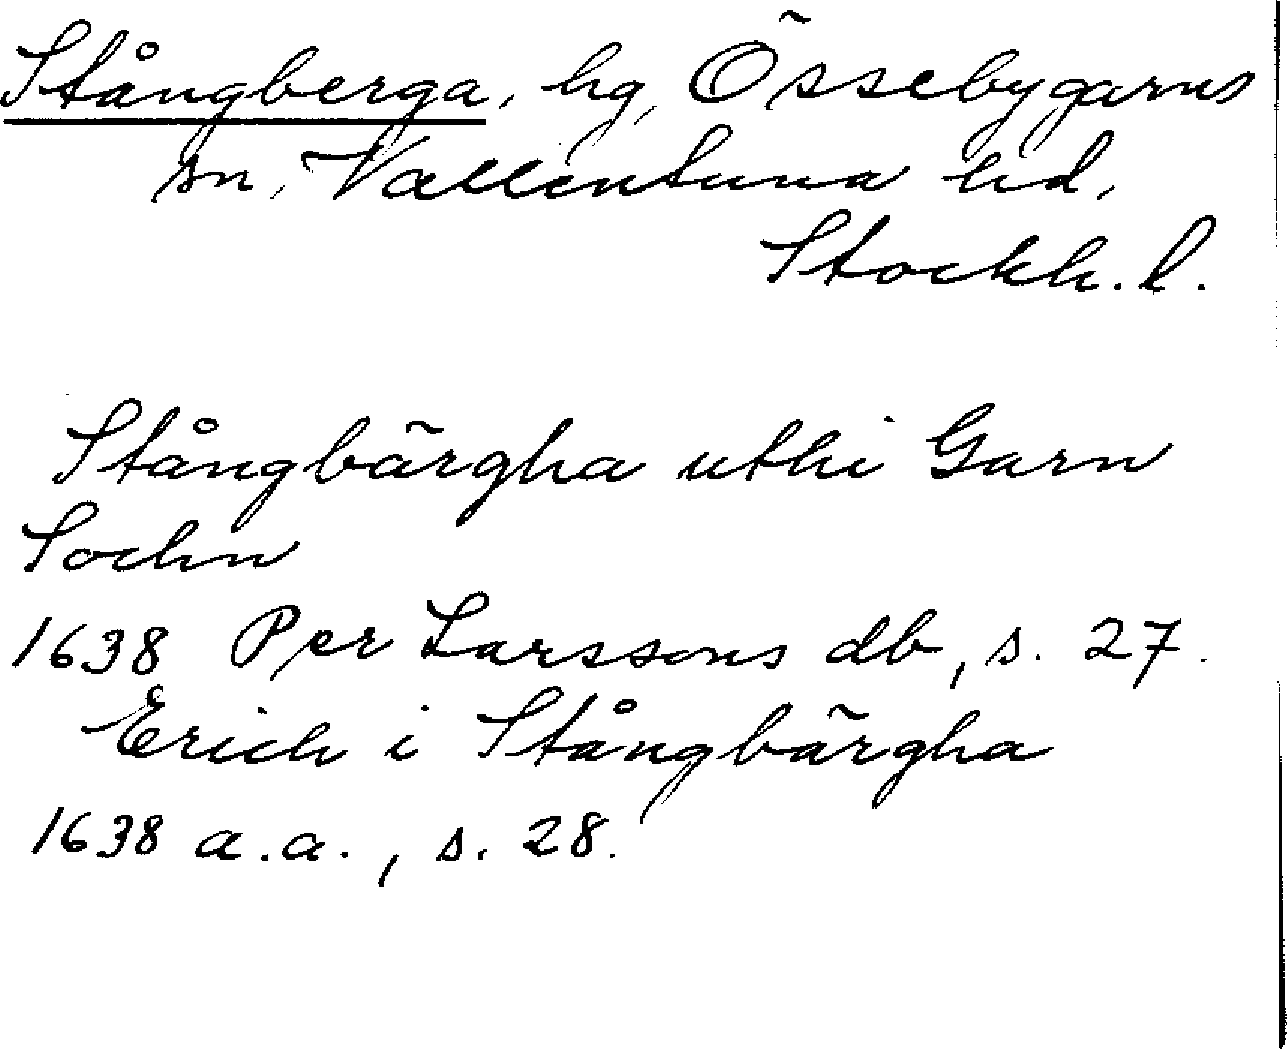 Stångberga, hg, Össebygarns
sn, Vallentuna hd,
Stockh. l.
Stångbärgha uthi Garn
Sochn
1638 Per Larssons db, s. 27.
Erich i Stångbärgha
1638 a.a., s. 28.